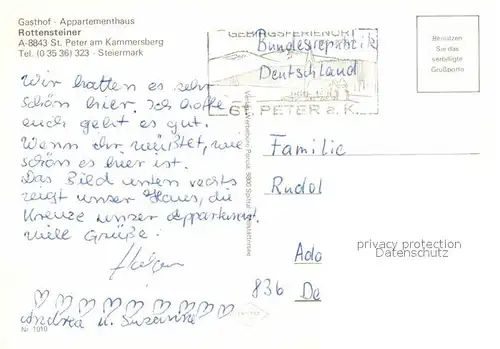 Gasthof - Appartementhaus
Rottensteiner
A-8843 St. Peter am Kammersberg
Tel. (0 35 36) 323 - Steiermark
Wir hatten es sehr
schön hier. Ich hoffe
euch geht es gut.
Wenn ihr wüßtet, wie
schön es hier ist.
Das Bild unten rechts
zeigt unser Haus, die
Kreuze unser Appartement.
Viele Grüße.
Holger
Andrea u. Susanne
Nr. 1010
GEBIRGSFERIENORT
ST. PETER a. K.
Bundesrepublik
Deutschland
Benützen
Sie das
verbilligte
Grußporto
Familie
Rudol
Ado
836 De
privacy protection
Datenschutz